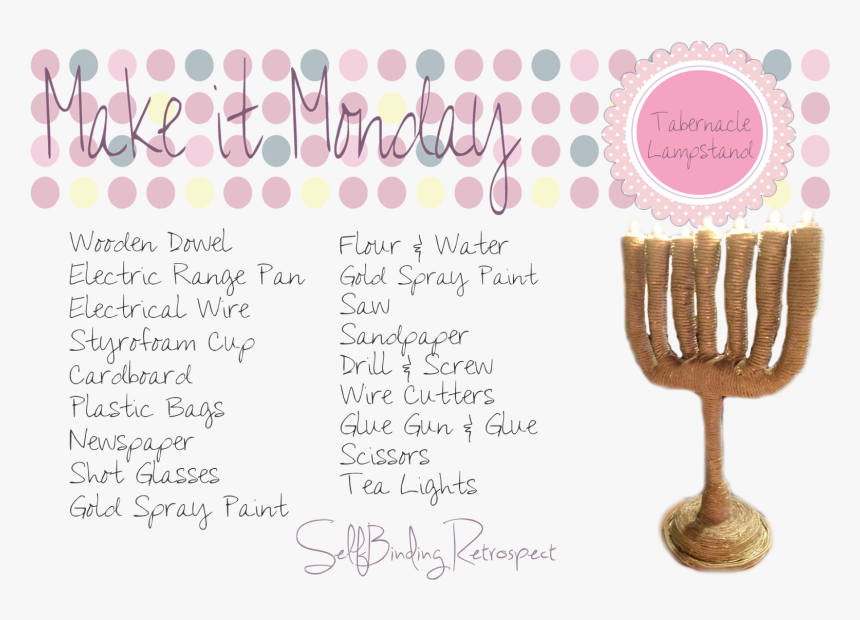 Make it Monday
Tabernacle
Lampstand
Wooden Dowel
Electric Range Pan
Electrical Wire
Styrofoam Cup
Cardboard
Plastic Bags
Newspaper
Shot Glasses
Gold Spray Paint
Flour & Water
Gold Spray Paint
Saw
Sandpaper
Drill & Screw
Wire Cutters
Glue Gun & Glue
Scissors
Tea Lights
SelfBinding Retrospect